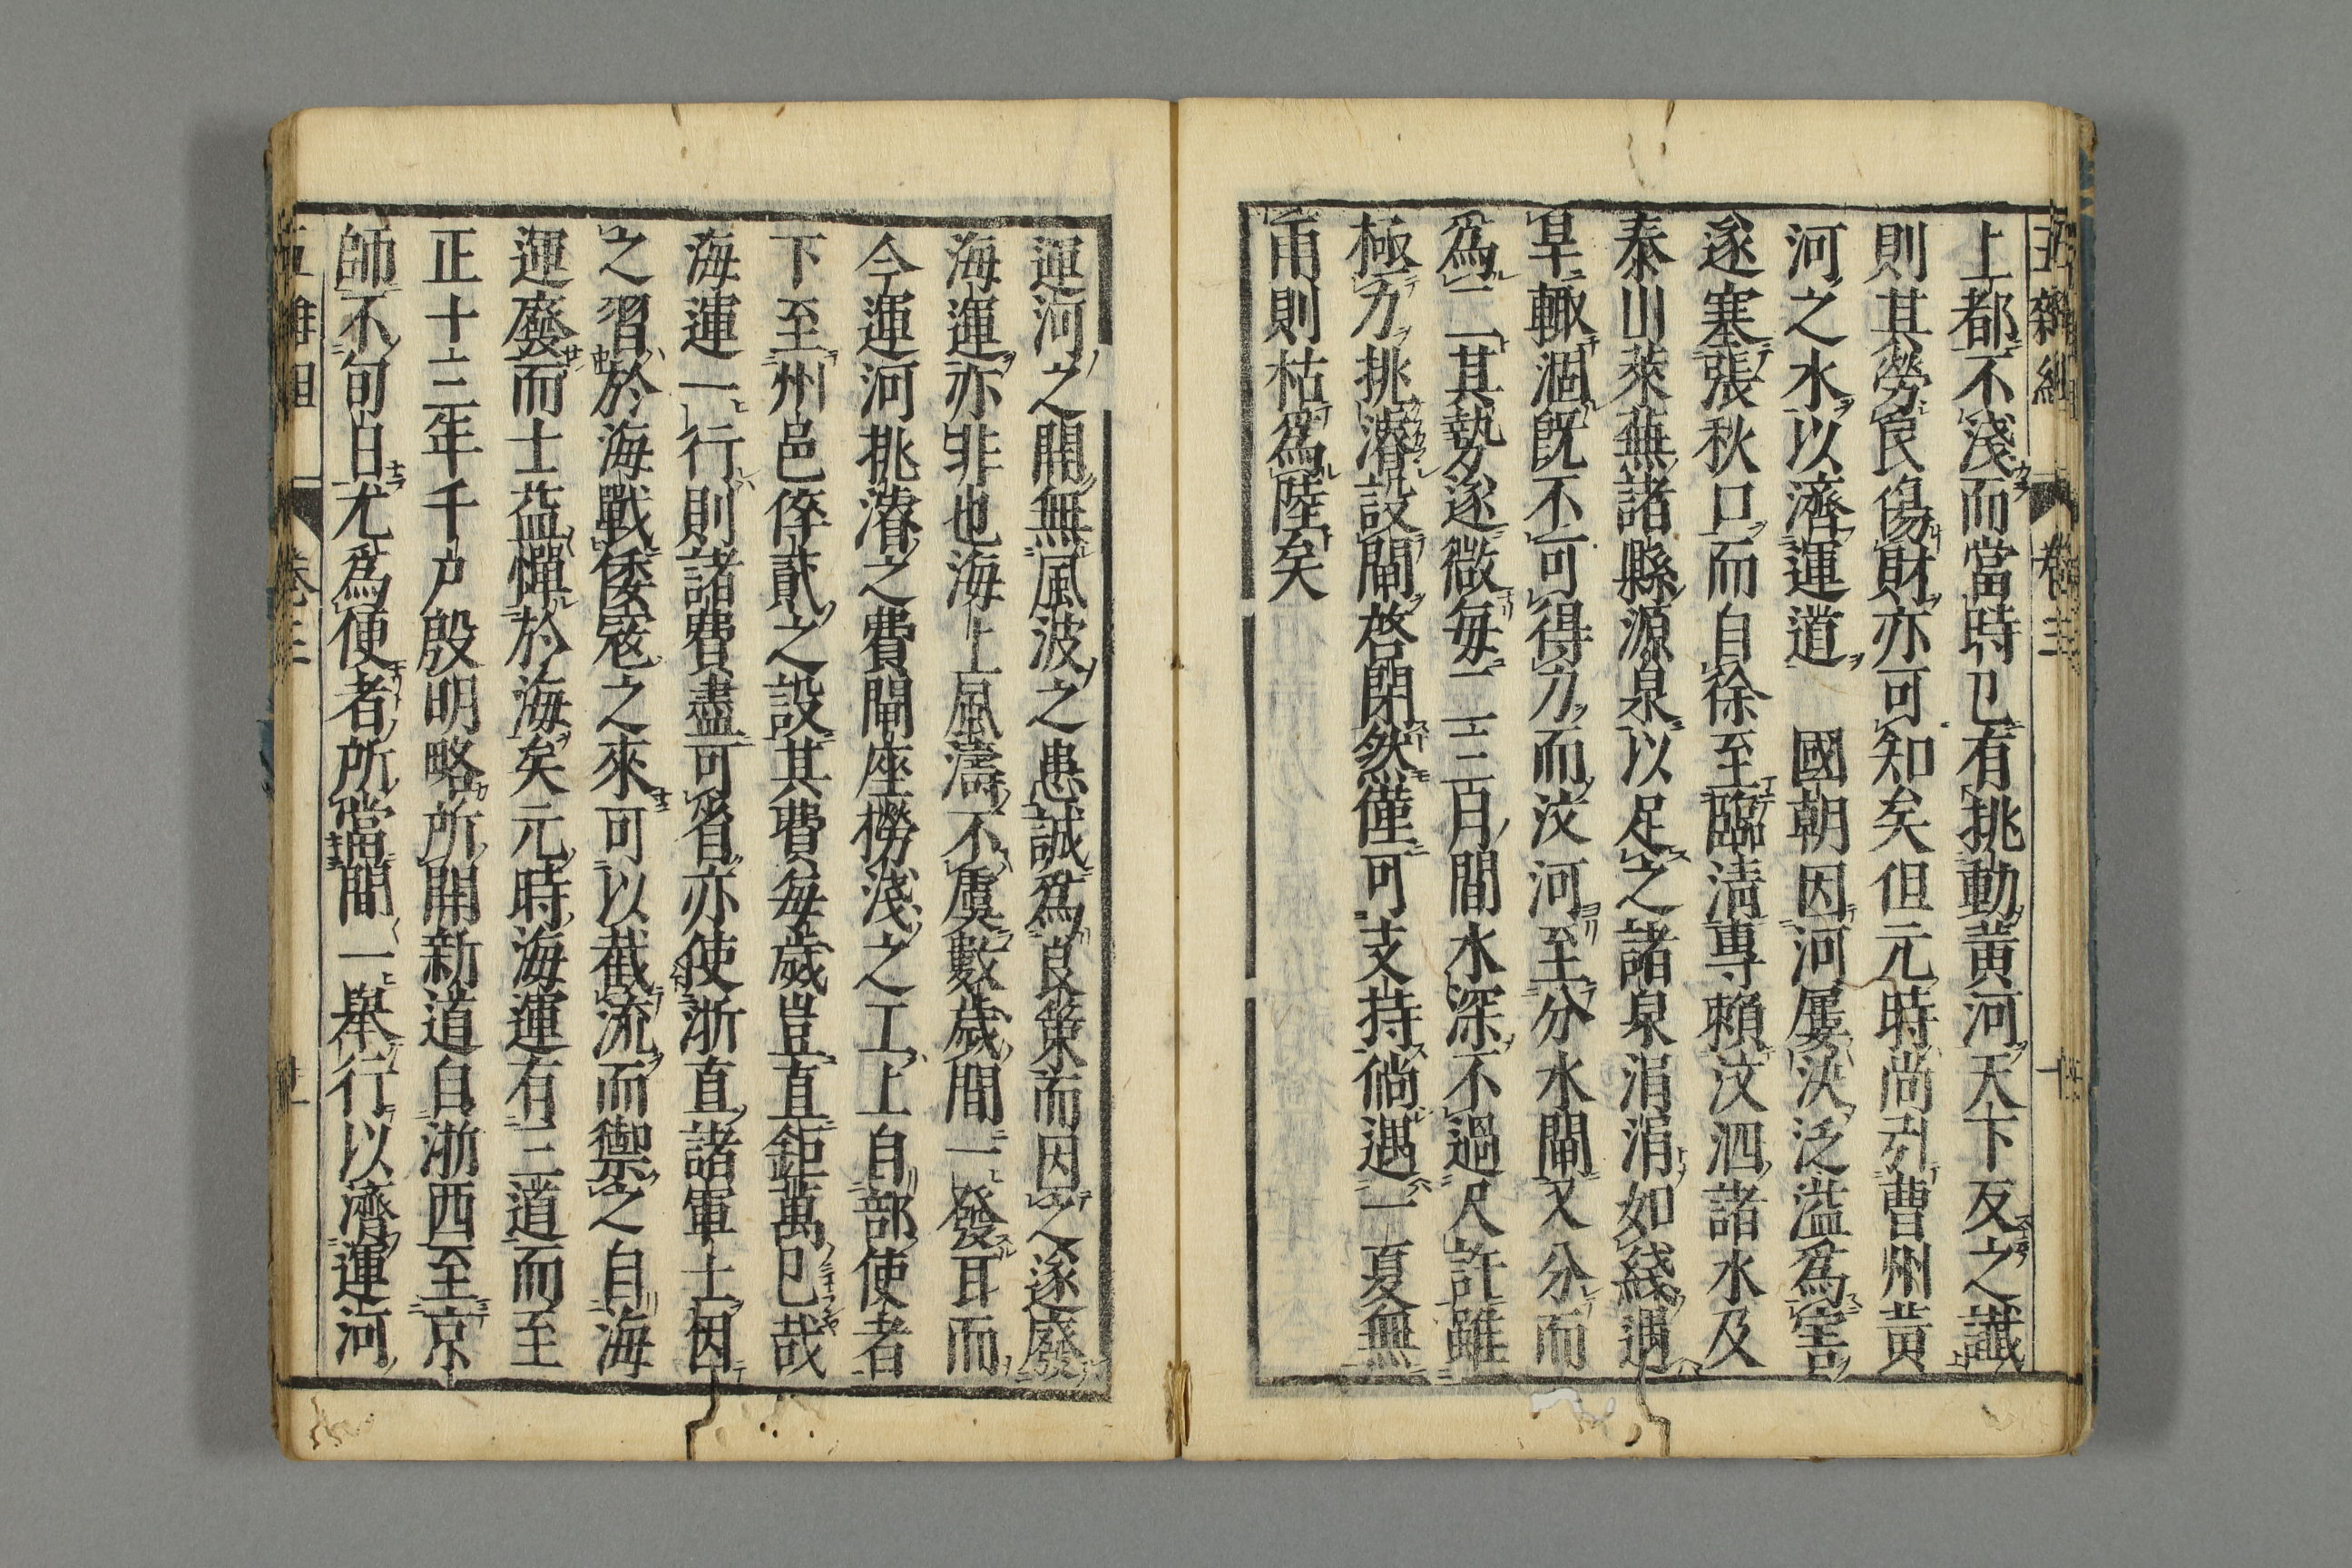 五雜組 卷三
上都不淺而當時已有挑動黄河天下反之讖
則其勞民傷財亦可知矣但元時尚引曹州黄
河之水以濟運道 國朝因河屢決泛溢爲害
遂塞張秋口而自徐至臨清專賴汶泗諸水及
泰山萊蕪諸縣源泉以足之諸泉涓涓如綫遇
旱輙涸既不可得力而汶河至分水閘又分而
爲二其勢遂微每二三月間水深不過尺許雖
極力挑濬設閘啓閉然僅可支持倘遇一夏無
雨則枯爲陸矣
運河之開無風波之患誠爲良策而因之遂廢
海運亦非也海上風濤不虞數歲間一發耳而
今運河挑濬之費閘座撈淺之工上自部使者
下至州邑倅貳之設其費每歲豈直鉅萬已哉
海運一行則諸費盡可省亦使浙直諸軍士因
之習於海戰倭寇之來可以截流而禦之自海
運廢而士益憚於海矣元時海運有三道而至
正十三年千戸殷明略所開新道自浙西至京
師不旬日尤爲便者所當間一舉行以濟運河
五雜俎 卷三